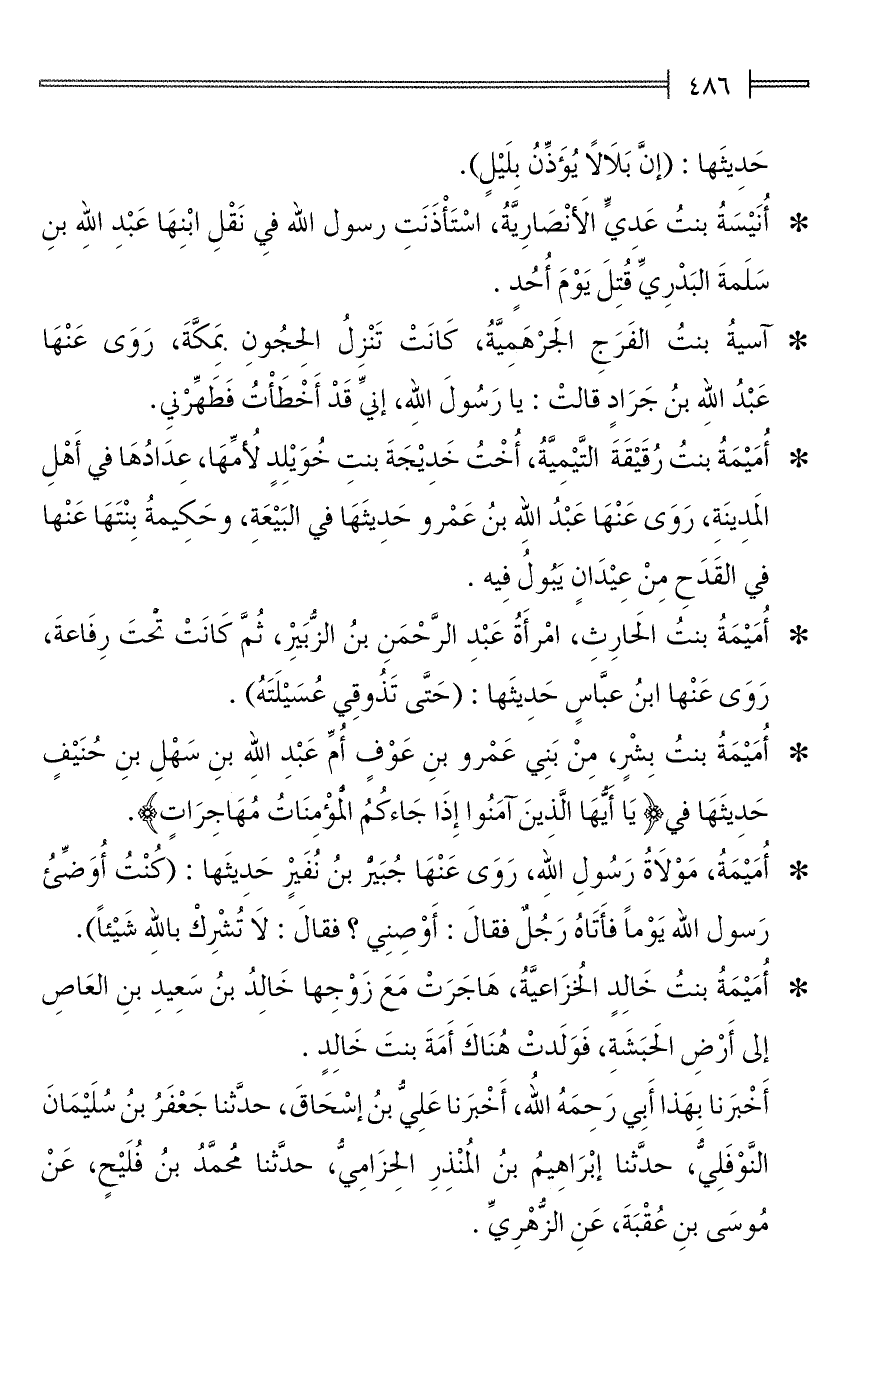 ٤٨٦
حَدِيثَها : (إنَّ بَلَالًا يُؤَذِّنُ بِلَيْلٍ).
* أُنَيْسَةُ بنتُ عَدِيٍّ الأَنْصَارِيَّةُ، اسْتَأْذَنَتِ رسول الله في نَقْلِ ابْنِهَا عَبْدِ اللهِ بنِ
سَلَمةَ البَدْرِيِّ قُتِلَ يَوْمَ أُحُدٍ .
* آسيةُ بنتُ الفَرَجِ الجَرْهَمِيَّةُ، كَانَتْ تَنْزِلُ الحِجُونِ بِمَكَّةَ، رَوَى عَنْهَا
عَبْدُ اللهِ بنُ جَرَادٍ قالتْ : يا رَسُولَ اللهِ، إنيِّ قَدْ أَخْطَأْتُ فَطَهِّرْنِي.
* أُمَيْمَةُ بنتُ رُقَيْقَةَ التَّيْمِيَّةُ، أُخْتُ خَدِيْجَةَ بنتِ خُوَيْلِدٍ لأُمِّهَا، عِدَادُهَا في أَهْلِ
المَدِينَةِ، رَوَى عَنْهَا عَبْدُ اللهِ بنُ عَمْرو حَدِيثَهَا في البَيْعَةِ، وحَكِيمةُ بِنْتَهَا عَنْها
في القَدَحِ مِنْ عِيْدَانٍ يَبُولُ فِيه .
* أُمَيْمَةُ بنتُ الحَارِثِ، امْرأَةُ عَبْدِ الرَّحْمَنِ بنُ الزُّبَيْرِ، ثُمَّ كَانَتْ تَحْتَ رِفَاعةَ،
رَوَى عَنْها ابنُ عبَّاسٍ حَدِيثَها : (حَتَّى تَذُوقِي عُسَيْلَتَهُ) .
* أُمَيْمَةُ بنتُ بِشْرٍ، مِنْ بَنِي عَمْرو بنِ عَوْفٍ أُمِّ عَبْدِ اللهِ بنِ سَهْلِ بنِ حُنَيْفٍ
حَدِيثَهَا في﴿ يَا أَيُّهَا الَّذِينَ آمَنُوا إِذَا جَاءكُمُ الْمُؤْمِنَاتُ مُهَاجِرَاتٍ﴾.
* أُمَيْمَةُ، مَوْلَاةُ رَسُولِ اللهِ، رَوَى عَنْهَا جُبَيْرُ بنُ نُفَيْرٍ حَدِيثَها : (كُنْتُ أُوَضِّئُ
رَسول اللهِ يَوْماً فأَتَاهُ رَجُلٌ فقالَ : أَوْصِنِي ؟ فقالَ : لَا تُشْرِكْ باللهِ شَيْئاً).
* أُمَيْمَةُ بنتُ خَالدٍ الخُزَاعيَّةُ، هَاجَرَتْ مَعَ زَوْجِها خَالِدُ بنُ سَعِيدِ بنِ العَاصِ
إلى أَرْضِ الحَبَشَةِ، فَوَلَدتْ هُنَاكَ أَمَةَ بنتَ خَالدٍ .
أَخْبَرَنا بِهَذا أَبي رَحِمَهُ اللهُ، أَخْبَرَنا عَلِيُّ بنُ إسْحَاقَ، حدَّثنا جَعْفَرُ بنُ سُلَيْمَانَ
النَّوْفَلِيُّ، حدَّثنا إبْرَاهِيمُ بنُ المُنْذِرِ الحِزَامِيُّ، حدَّثنا مُحمَّدُ بنُ فُلَيْحٍ، عَنْ
مُوسَى بنِ عُقْبَةَ، عَنِ الزُّهْرِيِّ .